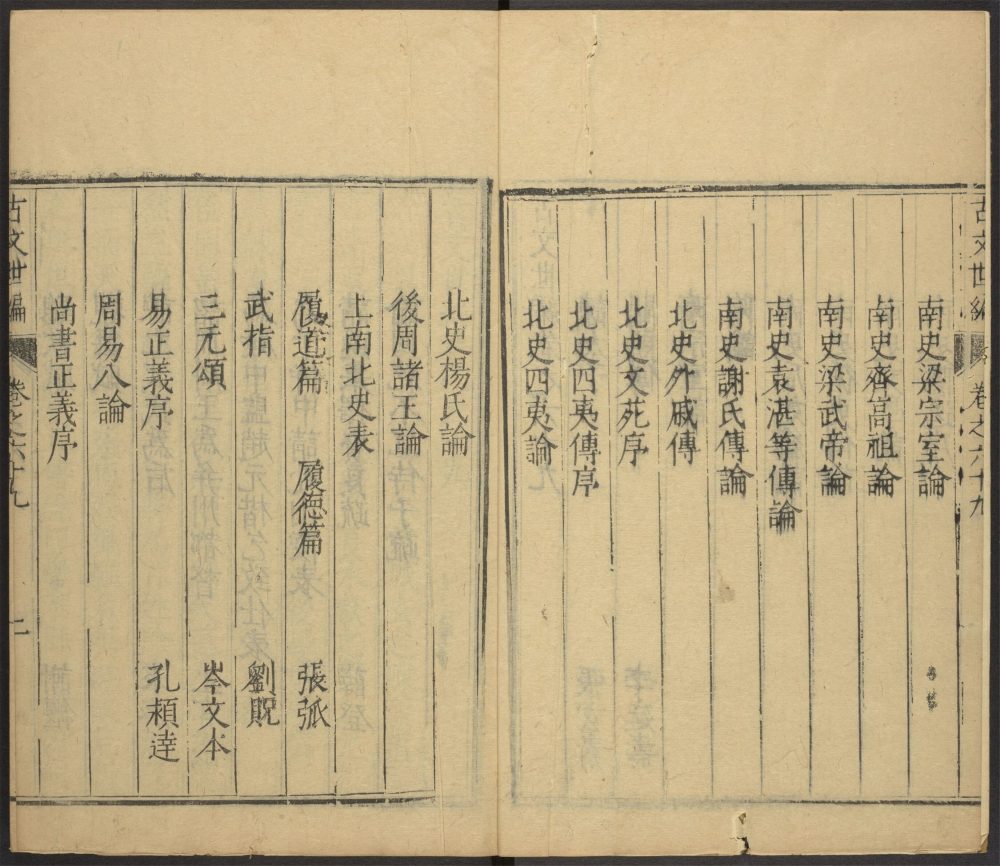 古文世編 卷之六十九
南史梁宗室論
南史齊高祖論
南史梁武帝論
南史袁湛等傳論
南史謝氏傳論
北史外戚傳
北史文苑序
北史四夷傳序
北史四夷論
北史楊氏論
後周諸王論
上南北史表
履道篇 履德篇 張弧
武指 劉貺
三元頌 岑文本
易正義序 孔頛逹
周易八論
尚書正義序
古文世編 卷之六十九 二